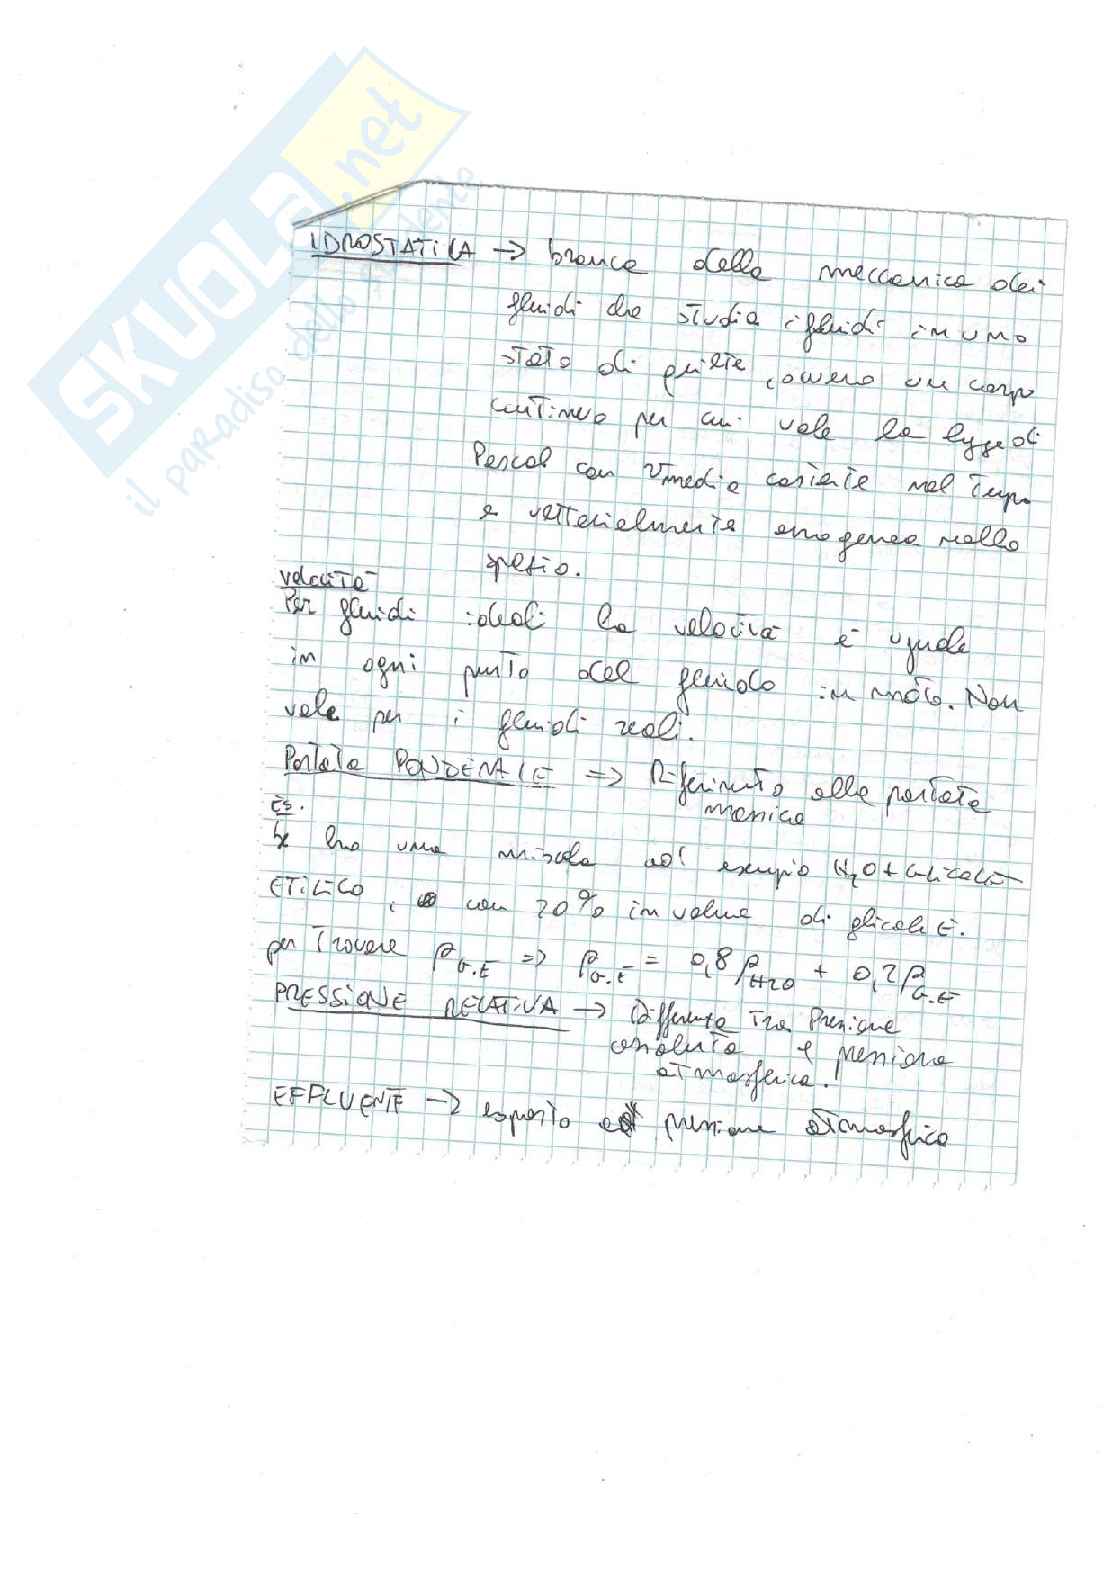 SKUOLA.net
il paradiso dello studente
IDROSTATICA → branca della meccanica dei
fluidi che studia i fluidi in uno
stato di quiete, ovvero un corpo
continuo per cui vale la legge di
Pascal con Vmedia costente nel tempo
e vettorialmente omogenea nello
spazio.
velocità
Per fluidi ideali la velocità è uguale
in ogni punto del fluido in moto. Non
vale per i fluidi reali.
Portata PONDERALE => Riferimento alla portata
massica
Es.
Se ho una miscela ad esempio H2O + GLICOLE
ETILICO, con 20% in volume di glicole E.
per Trovare ρG.E => ρG.E = 0,8ρH2O + 0,2ρG.E
PRESSIONE RELATIVA → Differenza Tra Pressione
assoluta e pressione
atmosferica!
EFFLUENTE → esposto a pressione atmosferica